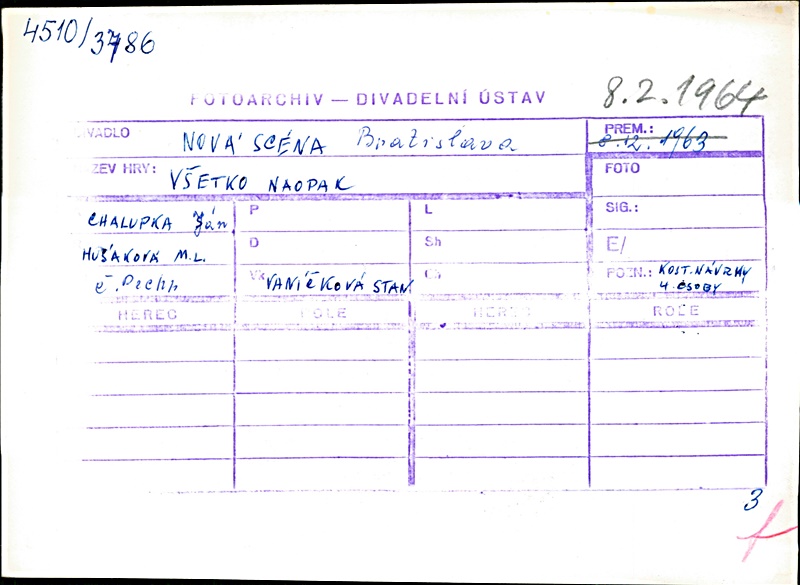 4510/3786
FOTOARCHIV — DIVADELNÍ ÚSTAV
8.2.1964
IVADLO NOVÁ SCÉNA Bratislava
PREM.: 8.12.1963
ZEV HRY: VŠETKO NAOPAK
FOTO
CHALUPKA Ján
P
L
SIG.:
HUŠÁKOVÁ M.L.
D
Sh
E/
Vk VANÍČKOVÁ STAN
Ch
POZN.: KOST. NÁVRHY
4 OSOBY
HEREC
ROLE
HEREC
ROLE
3